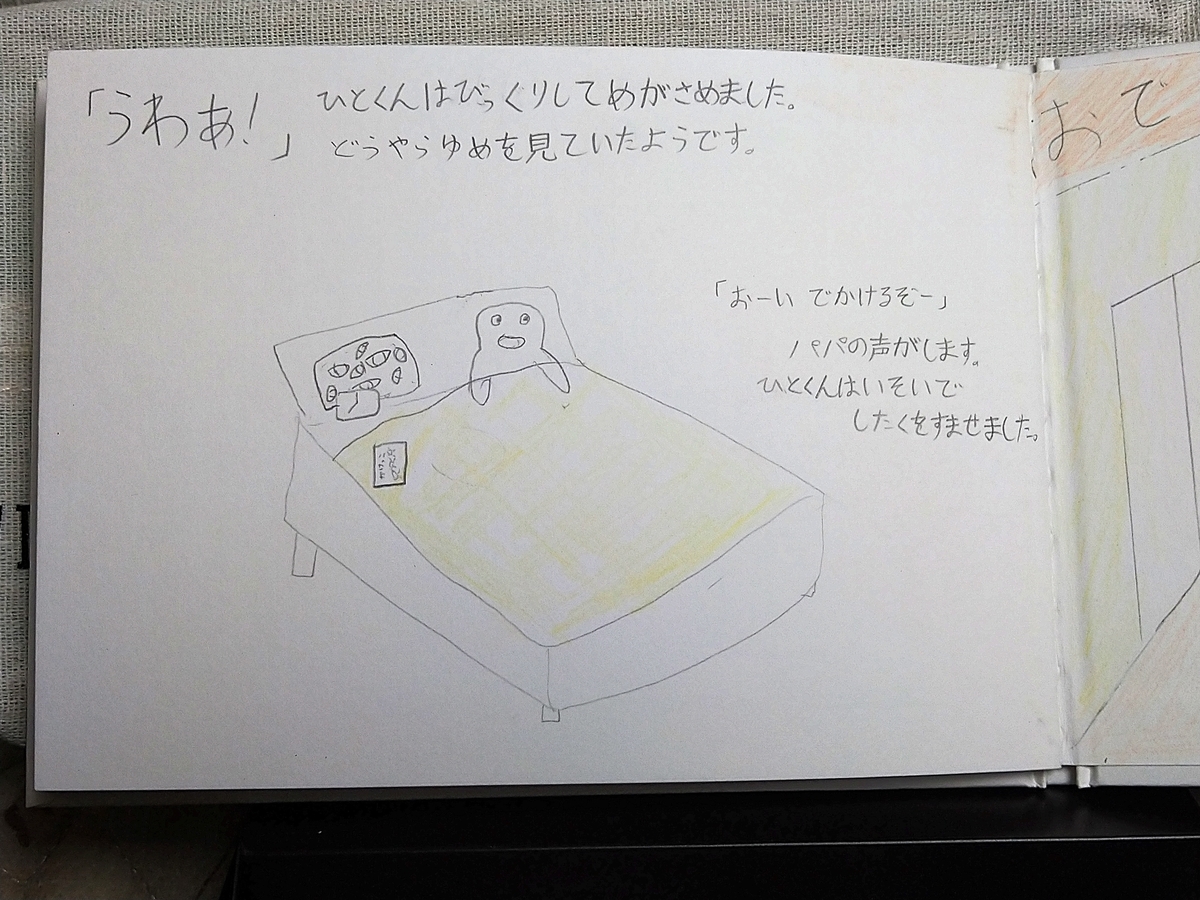 「うわあ!」
ひとくんはびっくりしてめがさめました。
どうやらゆめを見ていたようです。
「おーい でかけるぞー」
パパの声がします。
ひとくんはいそいで
したくをすませました。
おで